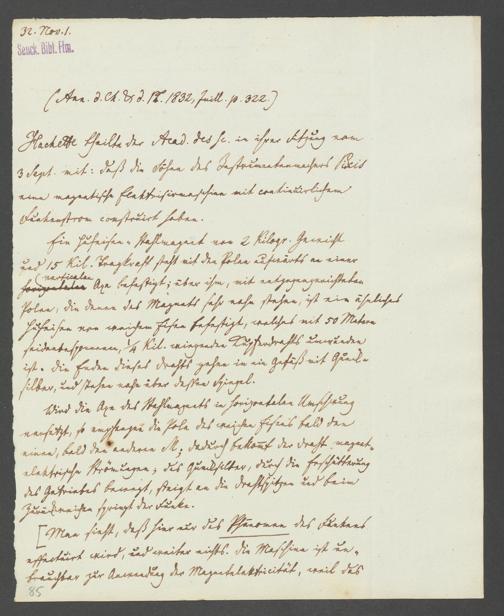 32. Nov. 1.
Senck. Bibl. Ffm.
(Ann. d. Ch. & d. Ph. 1832, Juill. p. 322.)
Hachette theilte der Acad. des sc. in ihrer Sitzung vom
3 Sept. mit: daß die Söhne des Instrumentenmachers Pixii
eine magnetische Elektrisirmaschine mit continuirlichem
Funkenstrom construirt haben.
Ein Hufeisen-Stahlmagnet von 2 Kilogr. Gewicht
und 15 Kil. Tragkraft steht mit den Polen aufwärts an einer
verticalen
horizontalen Axe befestigt; über ihm, mit entgegengerichteten
Polen, die denen des Magnets sehr nahe stehen, ist ein ähnliches
Hufeisen von weichem Eisen befestigt, welches mit 50 Metern
seidenbesponnenen, 1/4 Kil. wiegenden Kupferdrahts umwunden
ist. Die Enden dieses Drahts gehen in ein Gefäß mit Queck-
silber, und stehen nahe über dessen Spiegel.
Wird die Axe des Stahlmagnets in horizontalen Umschwung
versetzt, so empfangen die Pole des weichen Eisens bald den
einen, bald den anderen M; dadurch bekommt der Draht magnet-
elektrische Strömungen; das Quecksilber, durch die Erschütterung
des Getriebes bewegt, steigt an die Drahtspitzen und beim
Zurückweichen springt der Funke.
[Man sieht, daß hier nur das Phänomen des Funkens
effectuirt wird, und weiter nichts. Die Maschine ist un-
brauchbar zur Anwendung der Magnetelektricität, weil das
85